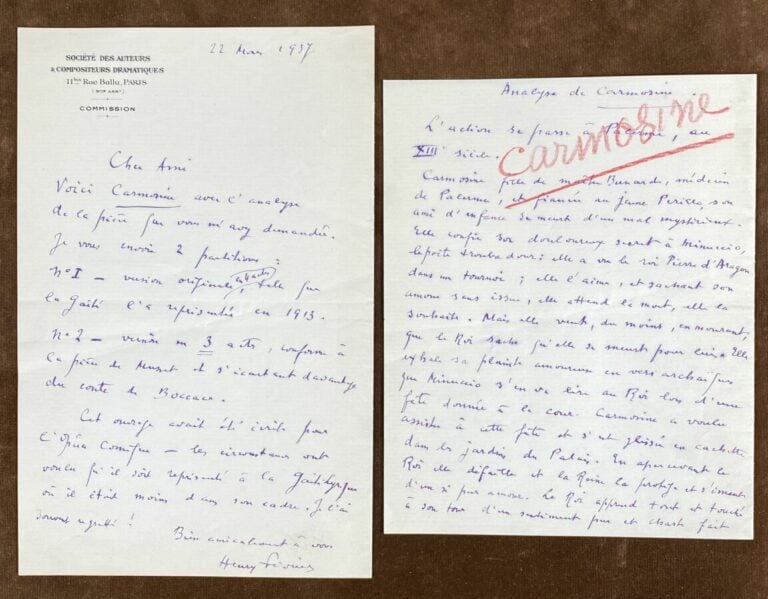 22 Mars 1937
SOCIÉTÉ DES AUTEURS
& COMPOSITEURS DRAMATIQUES
11bis Rue Ballu, PARIS
(9me ARRt)
COMMISSION
Cher Ami
Voici Carmosine avec l'analyse
de la pièce que vous m'avez demandée.
Je vous envoie 2 partitions :
No I – version originale, en 4 actes, telle que
la Gaîté l'a représentée en 1913.
No 2 – version en 3 actes, conforme à
la pièce de Musset et s'écartant davantage
du conte de Boccace.
Cet ouvrage avait été écrit pour
l'Opéra Comique – les circonstances ont
voulu qu'il soit représenté à la Gaîté Lyrique
où il était moins dans son cadre. Je l'ai
souvent regretté !
Bien amicalement à vous
Henry Février
Analyse de Carmosine
Carmosine
L'action se passe à Palerme, au
XIIIe siècle.
Carmosine fille de maître Bernardo, médecin
de Palerme, et fiancée au jeune Perillo, son
ami d'enfance se meurt d'un mal mystérieux.
Elle confie son douloureux secret à Minuccio,
le poète troubadour : elle a vu le roi Pierre d'Aragon
dans un tournoi ; elle l'aime, et sachant son
amour sans issue, elle attend la mort, elle la
souhaite. Mais elle veut, du moins, en mourant,
que le Roi sache qu'elle se meurt pour lui. Elle
exhale sa plainte amoureuse en vers archaïques
que Minuccio s'en va lire au Roi lors d'une
fête donnée à la cour. Carmosine a voulu
assister à cette fête et s'est glissée en cachette
dans les jardins du Palais. En apercevant le
Roi elle défaille et la Reine la protège et s'émeut
d'un si pur amour. Le Roi apprend tout et touché
à son tour d'un sentiment pur et chaste fait